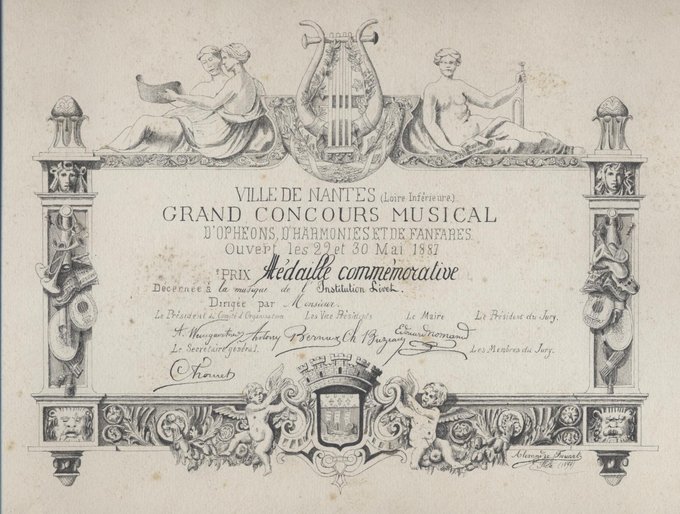 VILLE DE NANTES (Loire Inférieure)
GRAND CONCOURS MUSICAL
D'OPHEONS, D'HARMONIES ET DE FANFARES.
Ouvert les 29 et 30 Mai 1887
PRIX Médaille commémorative
Décernée à la musique de l'Institution Livet.
Dirigée par Monsieur.
Le Président du Comité d'Organisation Les Vice Présidents Le Maire Le Président du Jury.
Antony Bernus Ch Edouard Normand
Le Secrétaire général. Les Membres du Jury.